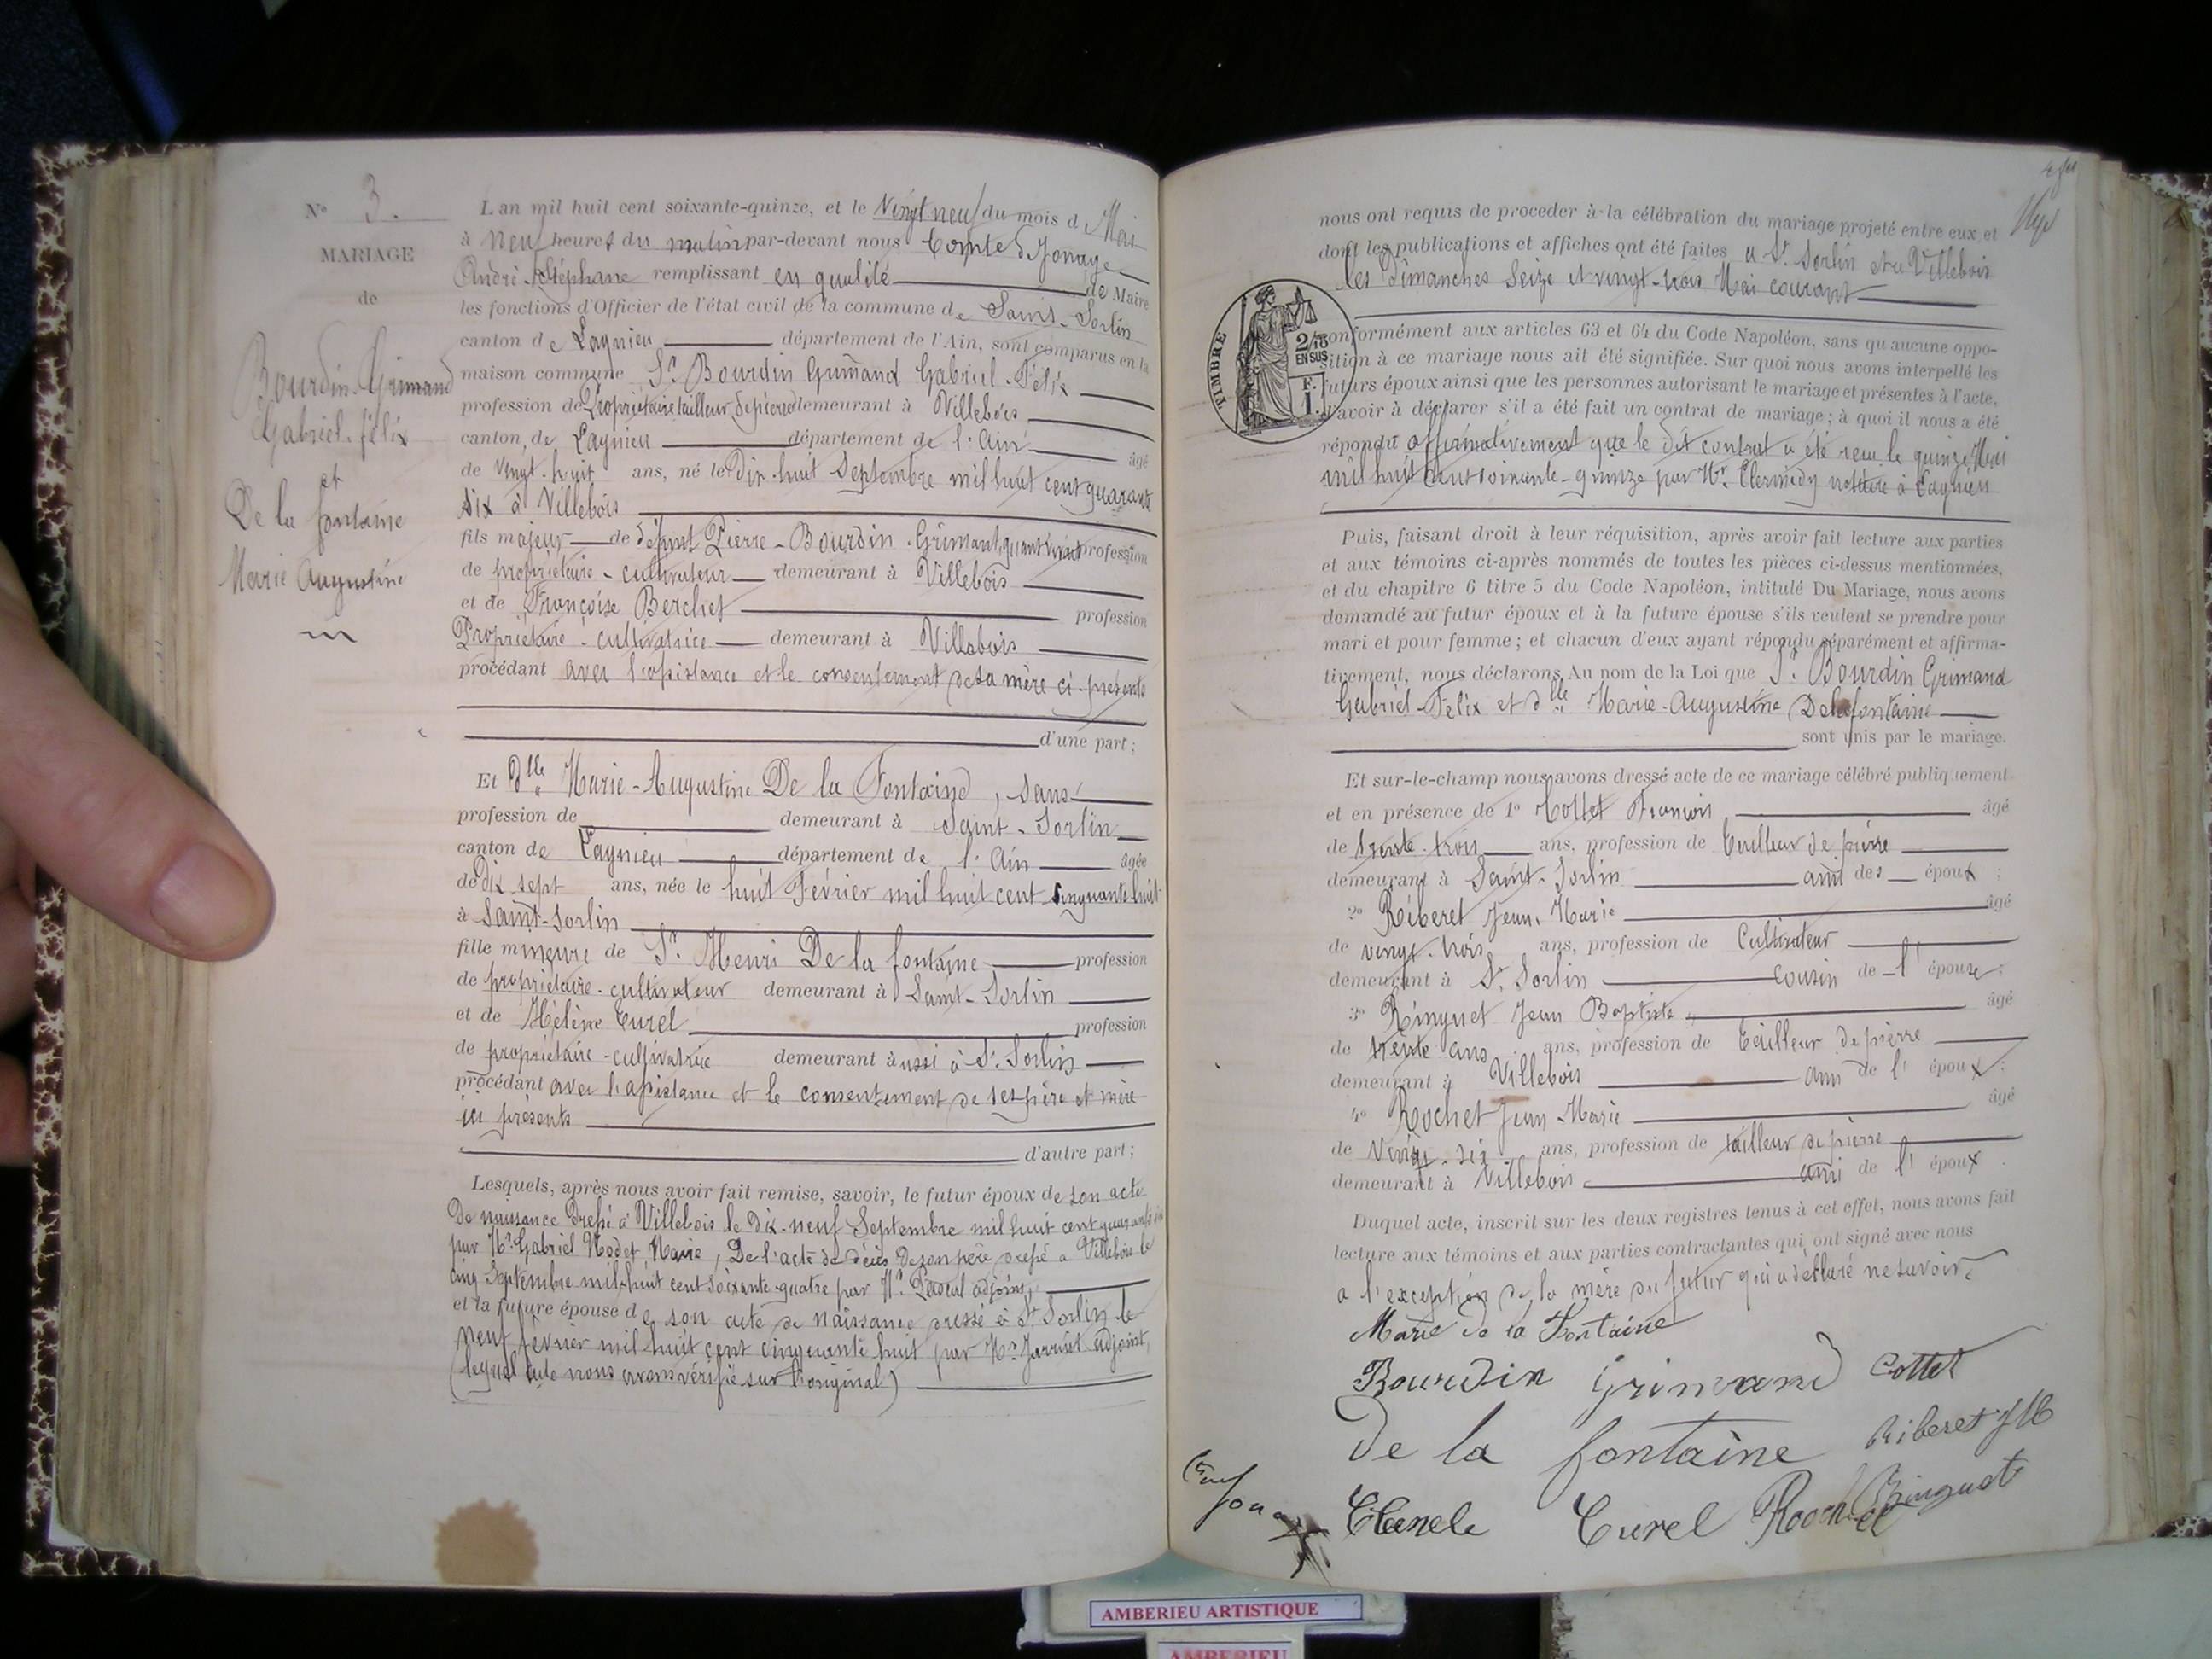 N° 3.
MARIAGE
de
Bourdin-Grimand
Gabriel-félix
et
De la fontaine
Marie Augustine
L'an mil huit cent soixante-quinze, et le Vingt neuf du mois de Mai
à neuf heures du matin par-devant nous Comte de Jonage
André-Stéphane remplissant en qualité de Maire
les fonctions d'Officier de l'état civil de la commune de Saint-Sorlin
canton de Lagnieu département de l'Ain, sont comparus en la
maison commune Sr. Bourdin Grimand Gabriel-Félix
profession de Propriétaire tailleur de pierre demeurant à Villebois
canton de Lagnieu département de l'Ain âgé
de vingt-huit ans, né le Dix-huit Septembre mil huit cent quarante
six à Villebois
fils majeur de défunt Pierre-Bourdin-Grimand, quant vivait profession
de propriétaire-cultivateur demeurant à Villebois
et de Françoise Berchet profession
Propriétaire-cultivatrice demeurant à Villebois
procédant avec l'assistance et le consentement de sa mère ci-présente
d'une part;
Et dlle Marie-Augustine De la Fontaine, sans
profession de demeurant à Saint-Sorlin
canton de Lagnieu département de l'Ain âgée
de Dix sept ans, née le huit Février mil huit cent cinquante-huit
à Saint-Sorlin
fille mineure de Sr. Henri De la fontaine profession
de propriétaire-cultivateur demeurant à Saint-Sorlin
et de Hélène Curel profession
de propriétaire-cultivatrice demeurant aussi à St. Sorlin
procédant avec l'assistance et le consentement de ses père et mère
ici présents
d'autre part;
Lesquels, après nous avoir fait remise, savoir, le futur époux de son acte
De naissance Dressé à Villebois le Dix-neuf Septembre mil huit cent quarante six
par Mr. Gabriel Rodet Maire, De l'acte de décès de son père dressé à Villebois le
cinq Septembre mil huit cent soixante-quatre par Mr. Pascal adjoint,
et la future épouse de son acte de Naissance dressé à St. Sorlin le
neuf février mil huit cent cinquante huit par Mr. adjoint,
(lequel acte nous avons vérifié sur l'original)
nous ont requis de procéder à la célébration du mariage projeté entre eux et
dont les publications et affiches ont été faites à St. Sorlin et à Villebois
les Dimanches Seize et vingt-trois Mai courant
TIMBRE
2/10
EN SUS
F.
1.
conformément aux articles 63 et 64 du Code Napoléon, sans qu'aucune oppo-
sition à ce mariage nous ait été signifiée. Sur quoi nous avons interpellé les
futurs époux ainsi que les personnes autorisant le mariage et présentes à l'acte,
d'avoir à déclarer s'il a été fait un contrat de mariage; à quoi il nous a été
répondu affirmativement que le dit contrat a été reçu le quinze Mai
mil huit cent soixante-quinze par Mr. notaire à Lagnieu
Puis, faisant droit à leur réquisition, après avoir fait lecture aux parties
et aux témoins ci-après nommés de toutes les pièces ci-dessus mentionnées,
et du chapitre 6 titre 5 du Code Napoléon, intitulé Du Mariage, nous avons
demandé au futur époux et à la future épouse s'ils veulent se prendre pour
mari et pour femme; et chacun d'eux ayant répondu séparément et affirma-
tivement, nous déclarons Au nom de la Loi que Sr. Bourdin Grimand
Gabriel-Felix et dlle Marie-Augustine Delafontaine
sont unis par le mariage.
Et sur-le-champ nous avons dressé acte de ce mariage célébré publiquement
et en présence de 1° Cottet François âgé
de trente-trois ans, profession de tailleur de pierre
demeurant à Saint-Sorlin ami des époux;
2° Riberet Jean-Marie âgé
de vingt-trois ans, profession de Cultivateur
demeurant à St. Sorlin cousin de l'épouse;
3° Ringuet Jean Baptiste âgé
de trente ans ans, profession de tailleur de pierre
demeurant à Villebois ami de l'époux;
4° Rochet Jean-Marie âgé
de Vingt-six ans, profession de tailleur de pierre
demeurant à Villebois ami de l'époux.
Duquel acte, inscrit sur les deux registres tenus à cet effet, nous avons fait
lecture aux témoins et aux parties contractantes qui ont signé avec nous
à l'exception de la mère du futur qui a déclaré ne savoir.
Marie de la Fontaine
Bourdin Grimand Cottet
De la fontaine Riberet JM
Curel Rochet Ringuet
AMBERIEU ARTISTIQUE
AMBERIEU